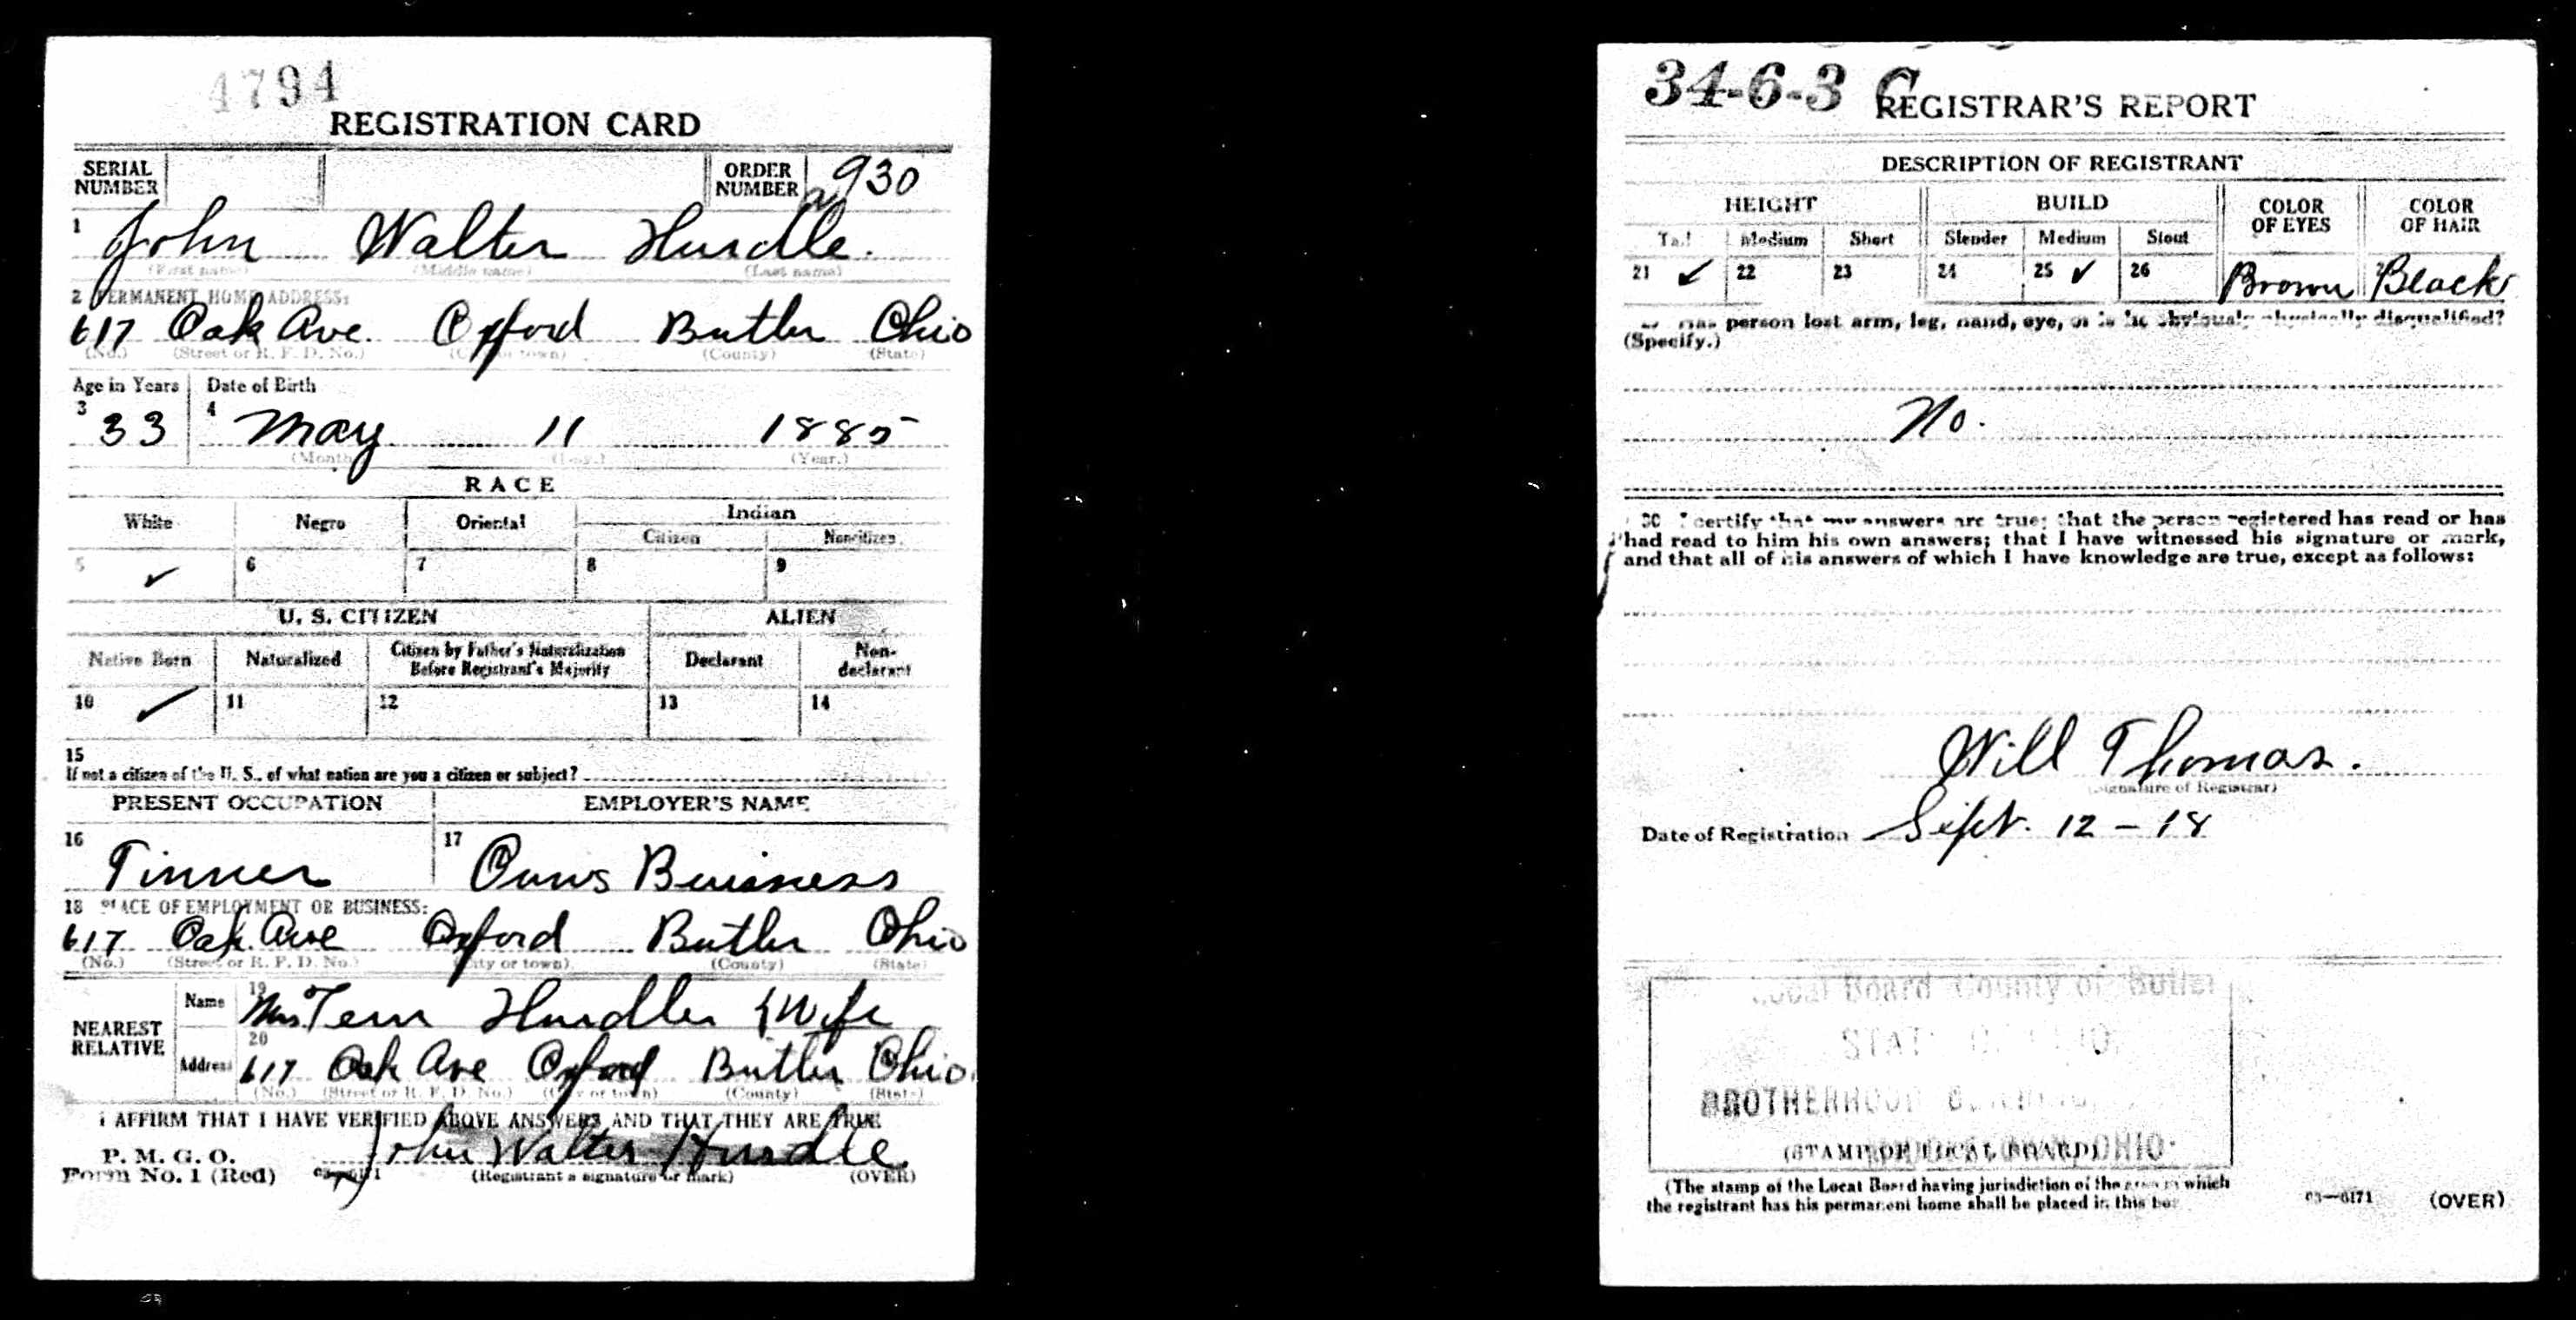 4794
REGISTRATION CARD
SERIAL NUMBER ORDER NUMBER a930
1 John Walter Hurdle.
(First name) (Middle name) (Last name)
2 PERMANENT HOME ADDRESS:
617 Oak Ave. Oxford Butler Ohio
(No.) (Street or R. F. D. No.) (City or town) (County) (State)
Age in Years Date of Birth
3 33 4 May 11 1885
(Month) (Day.) (Year.)
RACE
White Negro Oriental Indian
Citizen Noncitizen
5 ✓ 6 7 8 9
U. S. CITIZEN ALIEN
Native Born Naturalized Citizen by Father's Naturalization Before Registrant's Majority Declarant Non-declarant
10 ✓ 11 12 13 14
15
If not a citizen of the U. S., of what nation are you a citizen or subject?
PRESENT OCCUPATION EMPLOYER'S NAME
16 Tinner 17 Owns Business
18 PLACE OF EMPLOYMENT OR BUSINESS:
617 Oak Ave Oxford Butler Ohio
(No.) (Street or R. F. D. No.) (City or town) (County) (State)
NEAREST RELATIVE
Name 19 Mrs Hurdle Wife
Address 20 617 Oak Ave Oxford Butler Ohio
(No.) (Street or R. F. D. No.) (City or town) (County) (State)
I AFFIRM THAT I HAVE VERIFIED ABOVE ANSWERS AND THAT THEY ARE TRUE
P. M. G. O.
Form No. 1 (Red) John Walter Hurdle
(Registrant's signature or mark) (OVER)
34-6-3 C
REGISTRAR'S REPORT
DESCRIPTION OF REGISTRANT
HEIGHT BUILD COLOR OF EYES COLOR OF HAIR
Tall Medium Short Slender Medium Stout
21 ✓ 22 23 24 25 ✓ 26 Brown Black
Has person lost arm, leg, hand, eye, or is he obviously physically disqualified?
(Specify.)
No.
30 I certify that my answers are true; that the person registered has read or has
had read to him his own answers; that I have witnessed his signature or mark,
and that all of his answers of which I have knowledge are true, except as follows:
Will Thomas.
(Signature of Registrar)
Date of Registration Sept. 12 - 18
Local Board County of Butler
STATE OF OHIO
BROTHERHOOD
OHIO
(STAMP OF LOCAL BOARD)
(The stamp of the Local Board having jurisdiction of the area in which
the registrant has his permanent home shall be placed in this box.)
03—6171 (OVER)